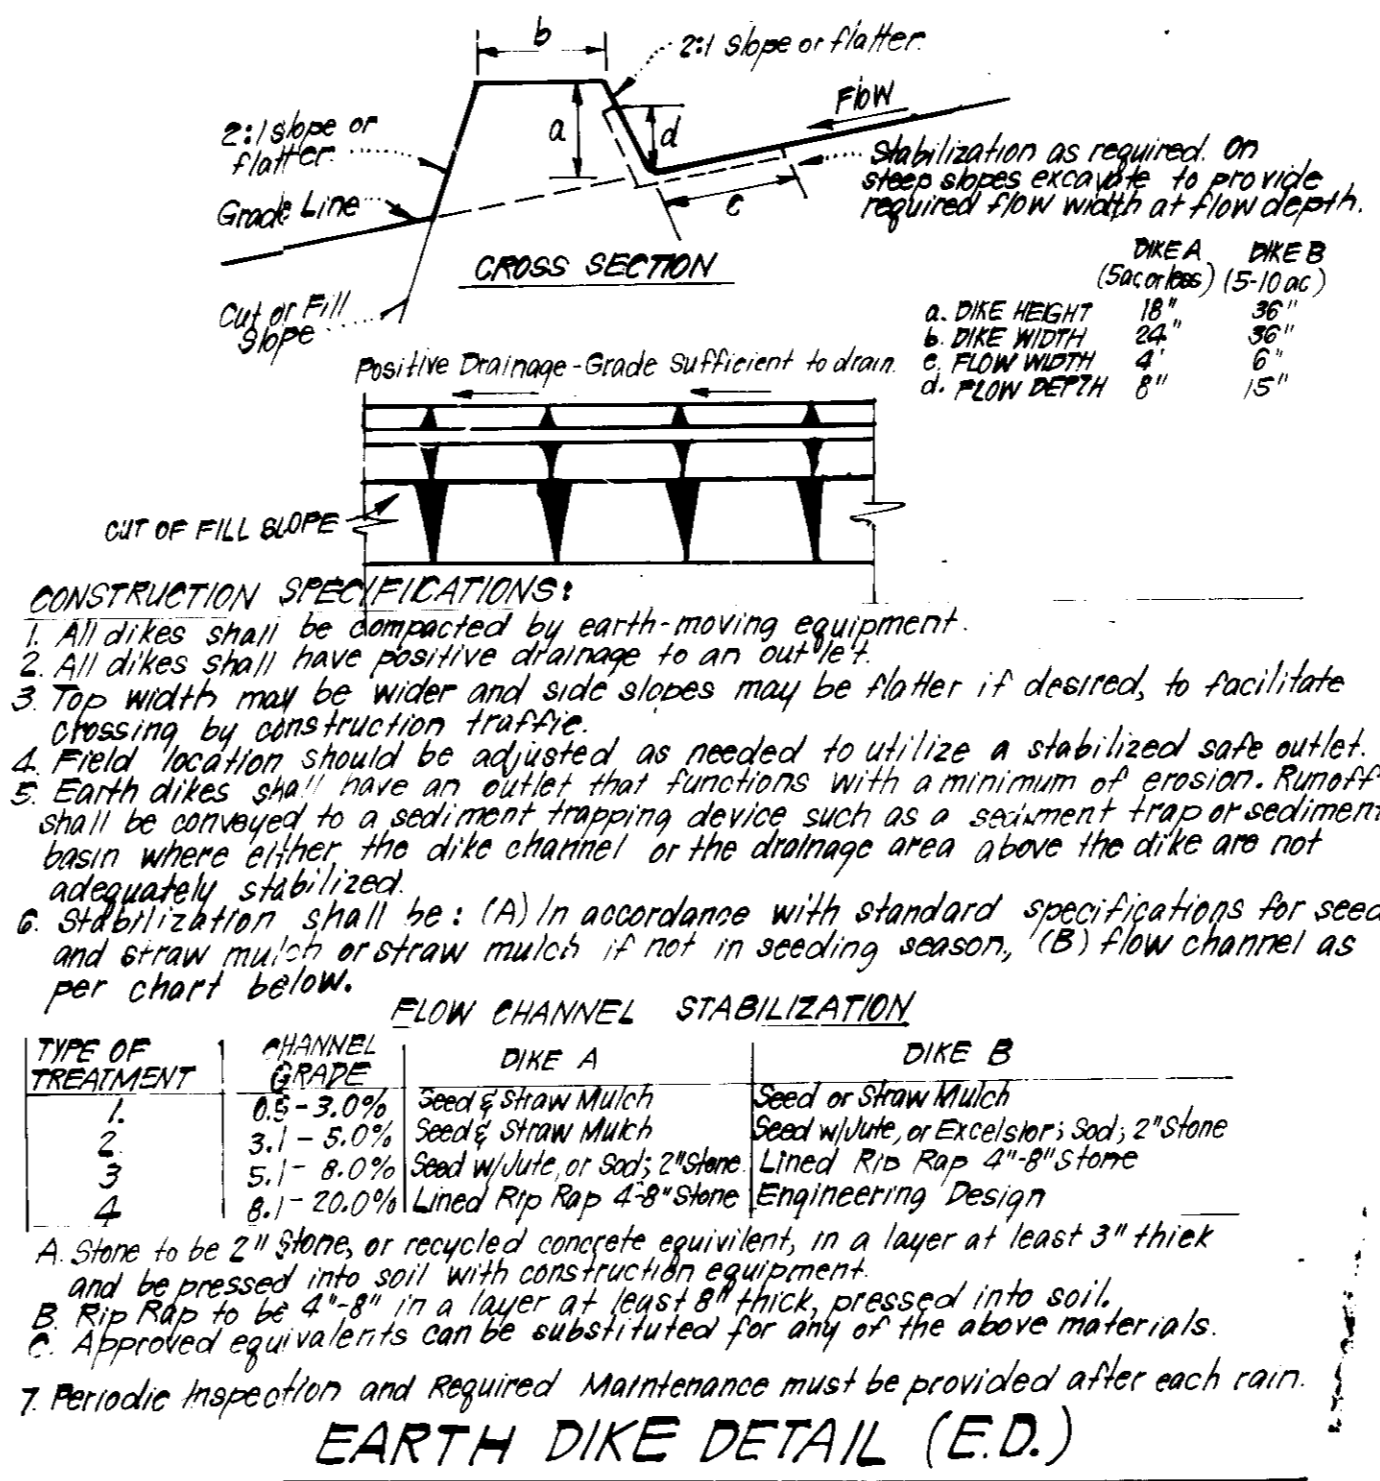 b
2:1 slope or flatter.
Flow
2:1 slope or
flatter.
a
d
Stabilization as required. On
steep slopes excavate to provide
required flow width at flow depth.
Grade Line
c
CROSS SECTION
Cut or Fill
Slope
DIKE A DIKE B
(5ac or less) (5-10 ac)
a. DIKE HEIGHT 18" 36"
b. DIKE WIDTH 24" 36"
c. FLOW WIDTH 4' 6"
d. FLOW DEPTH 8" 15"
Positive Drainage - Grade Sufficient to drain.
CUT OF FILL SLOPE
CONSTRUCTION SPECIFICATIONS:
1. All dikes shall be compacted by earth-moving equipment.
2. All dikes shall have positive drainage to an outlet.
3. Top width may be wider and side slopes may be flatter if desired, to facilitate
crossing by construction traffic.
4. Field location should be adjusted as needed to utilize a stabilized safe outlet.
5. Earth dikes shall have an outlet that functions with a minimum of erosion. Runoff
shall be conveyed to a sediment trapping device such as a sediment trap or sediment
basin where either the dike channel or the drainage area above the dike are not
adequately stabilized.
6. Stabilization shall be: (A) In accordance with standard specifications for seed
and straw mulch or straw mulch if not in seeding season, (B) flow channel as
per chart below.
FLOW CHANNEL STABILIZATION
TYPE OF TREATMENT CHANNEL GRADE DIKE A DIKE B
1. 0.5 - 3.0% Seed & Straw Mulch Seed or Straw Mulch
2 3.1 - 5.0% Seed & Straw Mulch Seed w/Jute, or Excelsior; Sod; 2" Stone
3 5.1 - 8.0% Seed w/Jute, or Sod; 2" Stone Lined Rip Rap 4"-8" Stone
4 8.1 - 20.0% Lined Rip Rap 4-8" Stone Engineering Design
A. Stone to be 2" Stone, or recycled concrete equivilent, in a layer at least 3" thick
and be pressed into soil with construction equipment.
B. Rip Rap to be 4"-8" in a layer at least 8" thick, pressed into soil.
C. Approved equivalents can be substituted for any of the above materials.
7. Periodic Inspection and Required Maintenance must be provided after each rain.
EARTH DIKE DETAIL (E.D.)